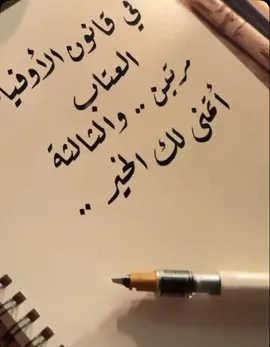 في قانون الأوفياء
العتاب
مرتين .. والثالثة
أتمنى لك الخير ..